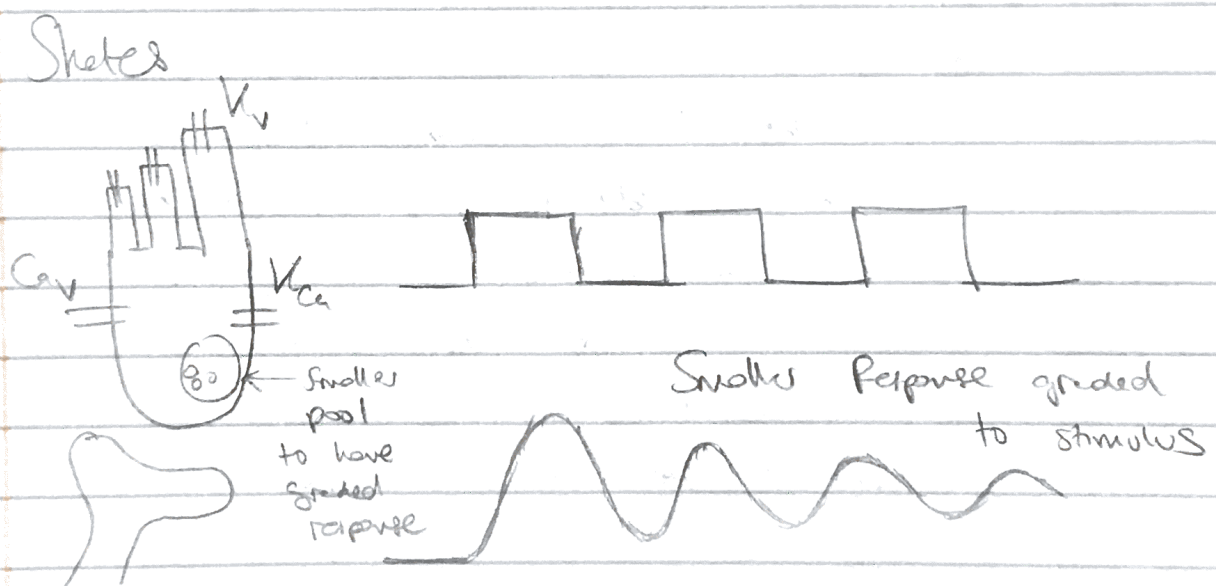 Skates
Kv
Cav
KCa
Smaller
pool
to have
graded
response
Smaller Response graded
to stimulus